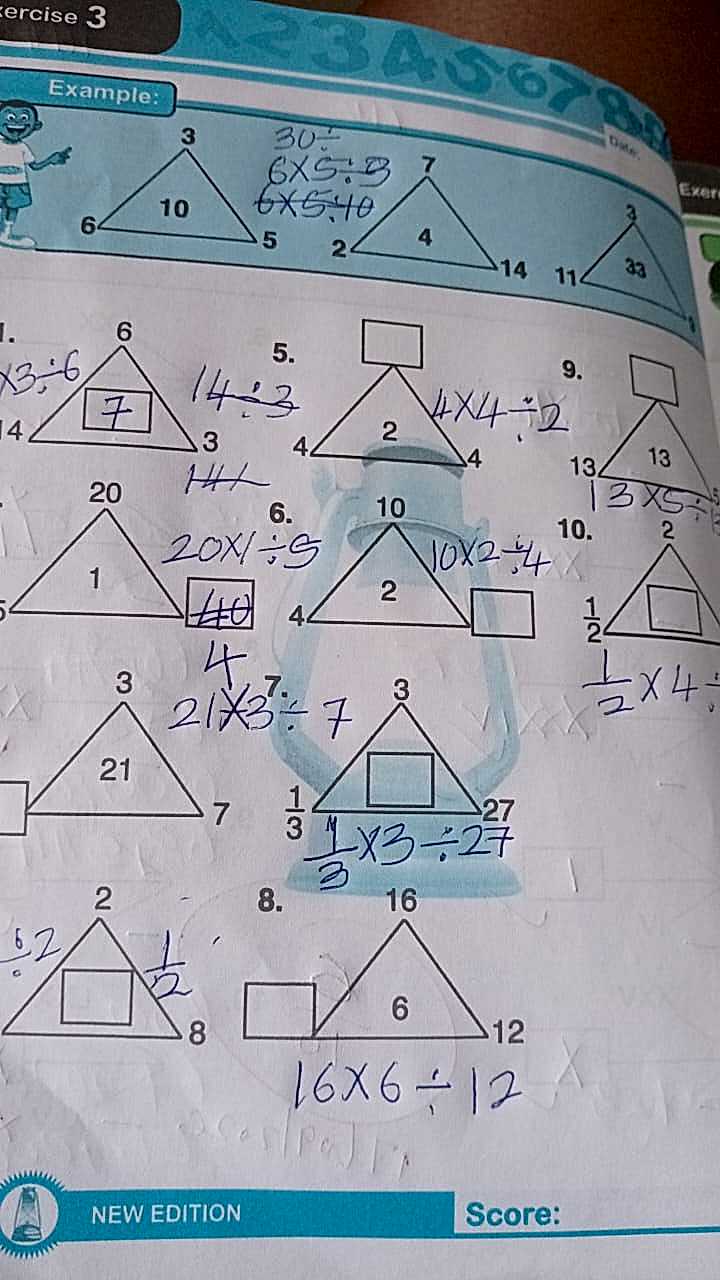 ercise 3
Example:
Date:
Exer
3
6 10 5
30÷
6×5÷3
6×5÷10
7
2 4 14
3
11 33
1.
6
×3÷6
7
14 3
14÷3
5.
4 2 4
4×4÷2
9.
13 13
13×5÷
20
1
20×1÷5
40
4
6.
10
4 2
10×2÷4
10.
2
1/2
1/2×4÷
3
21
7
21×3÷7
7.
3
1/3 27
1/3×3÷27
2
÷2 1/2
8
8.
16
6
12
16×6÷12
NEW EDITION
Score: